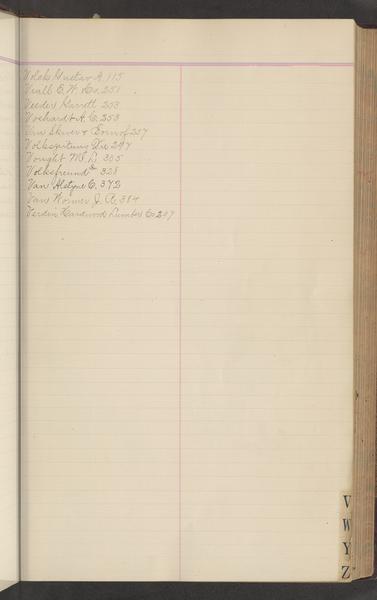 Volck Gustav A. 115
Viall E. W. Co. 251
Veeder Garrett 253
Voshardt A. C. 253
Van Skiver & 257
Volkszeitung Die 247
Vought M. D. 305
Volksfreund 328
Van Alstyne C. 372
Van Wormer J. R. 384
Verdin Hardwood Lumber Co 247
V
W
Y
Z